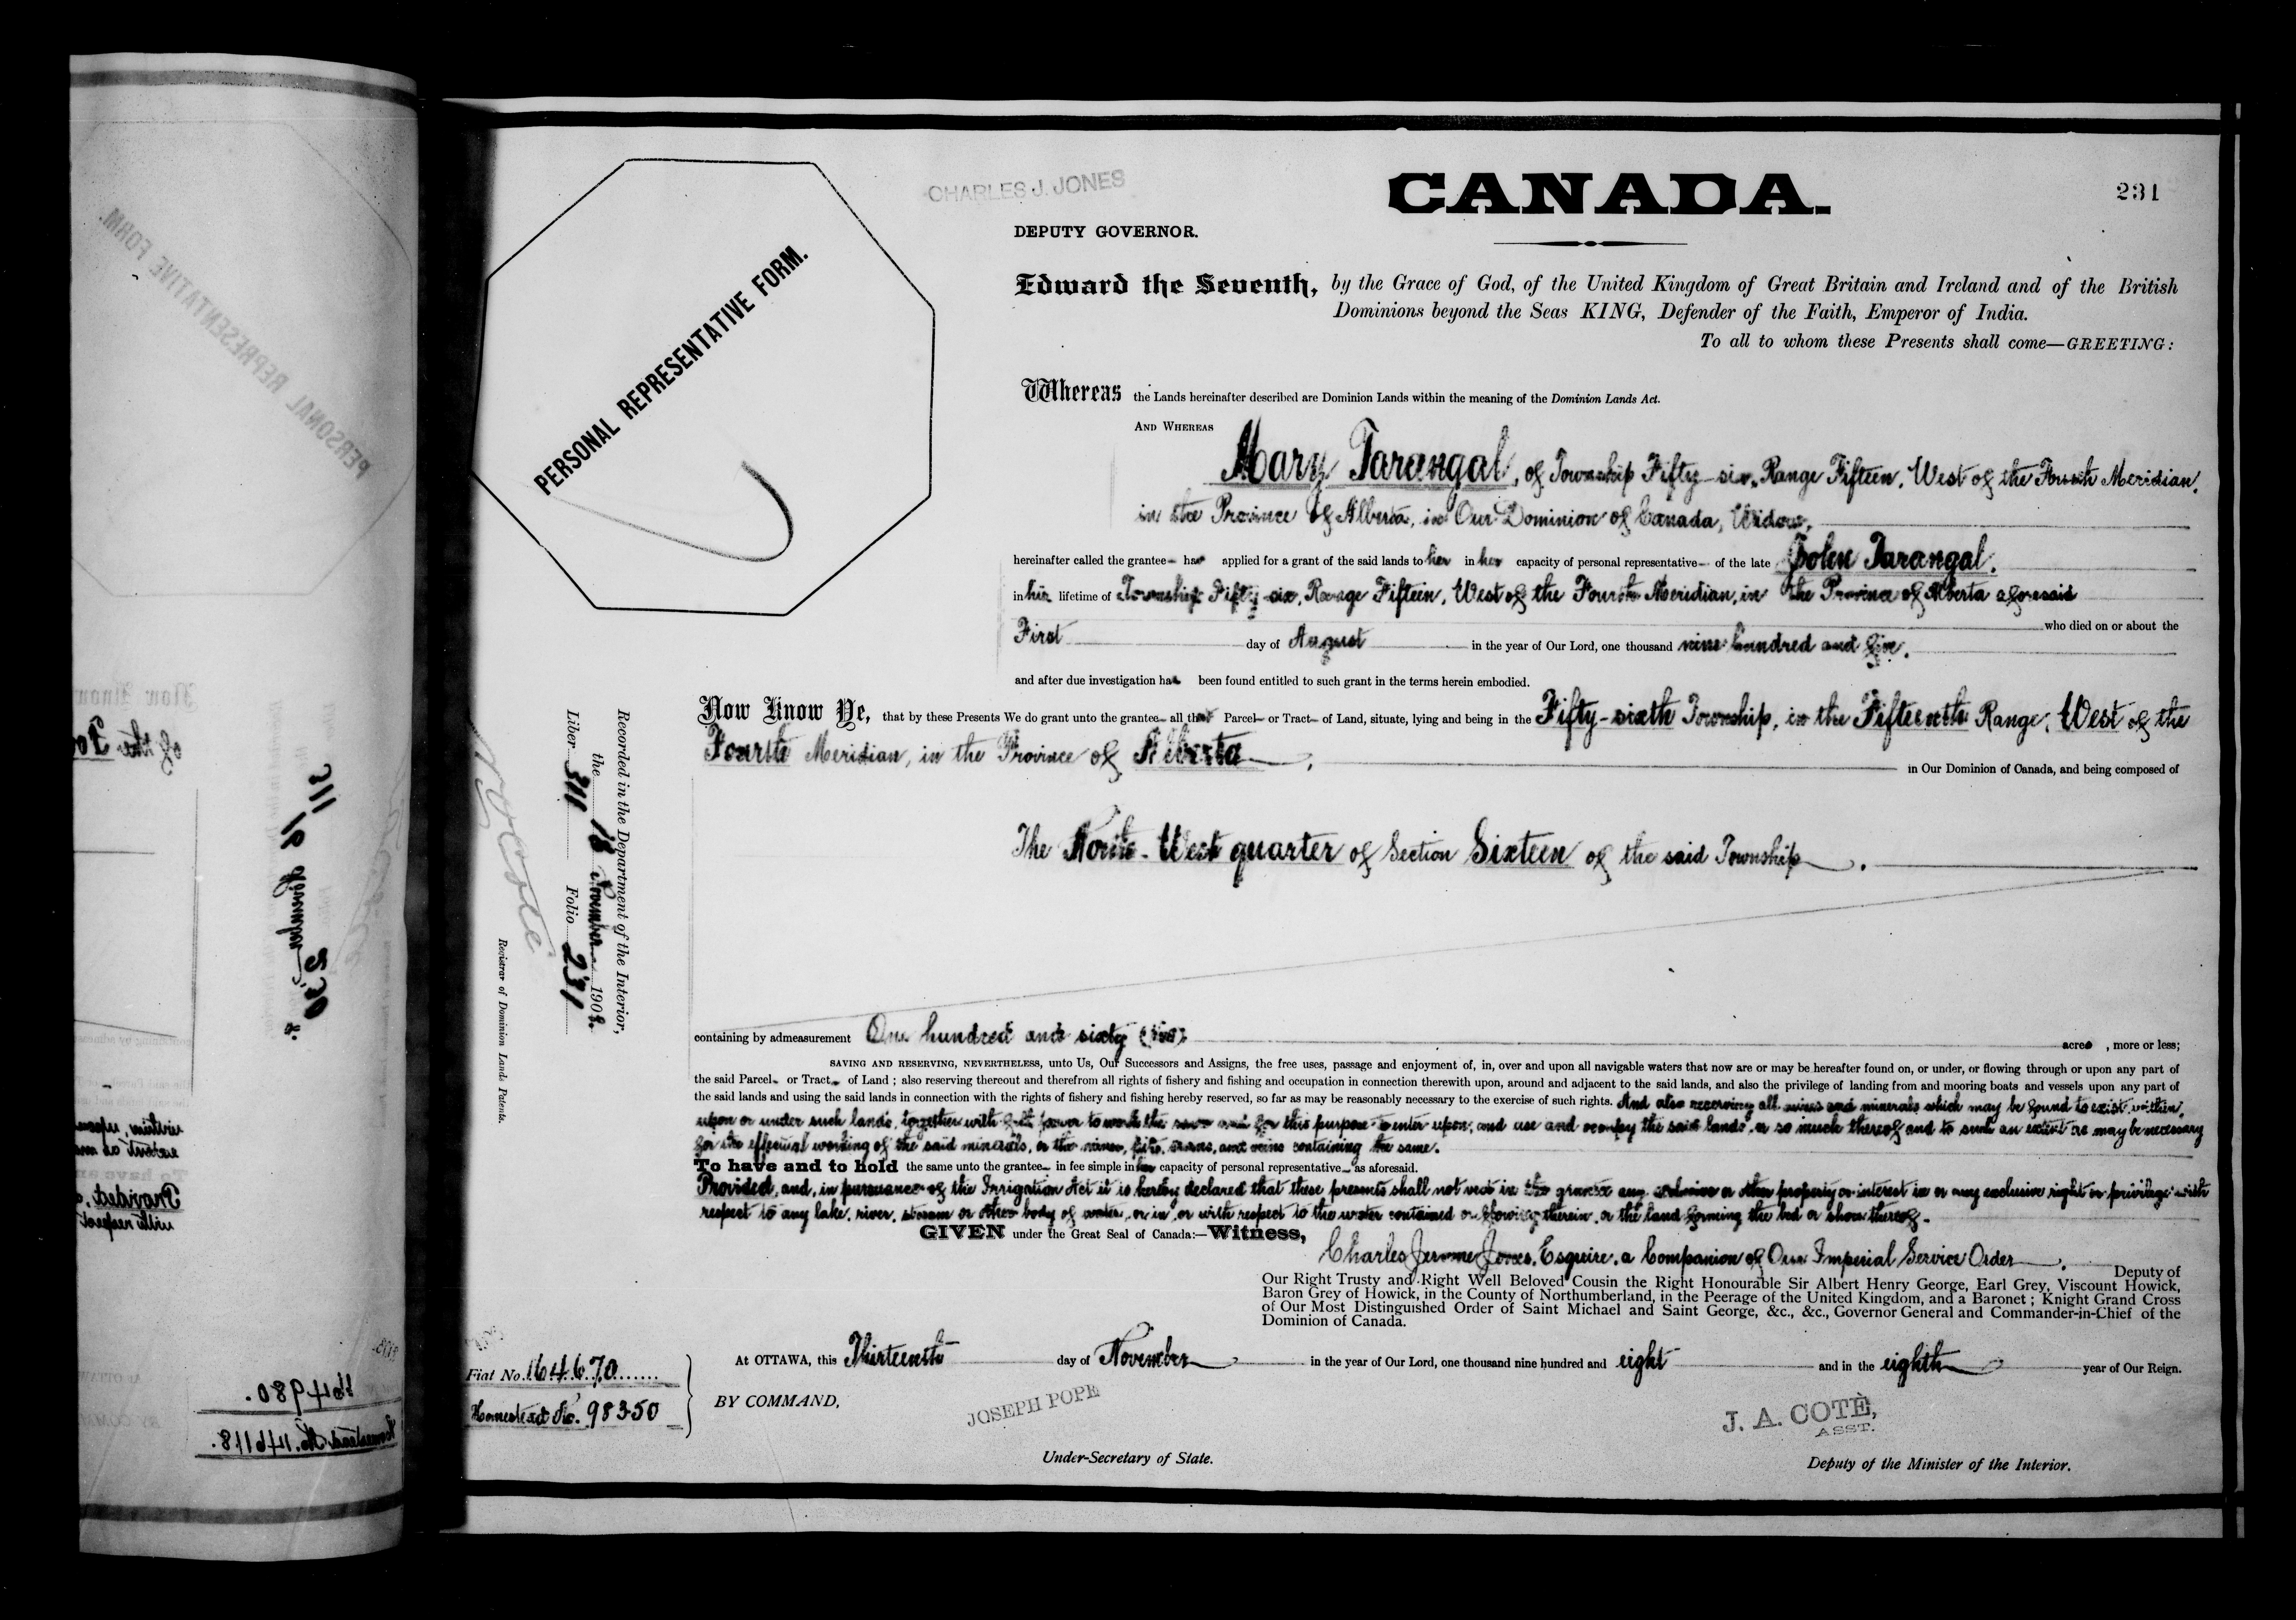 CHARLES J. JONES
CANADA.
231
DEPUTY GOVERNOR.
PERSONAL REPRESENTATIVE FORM.
Edward the Seventh, by the Grace of God, of the United Kingdom of Great Britain and Ireland and of the British
Dominions beyond the Seas KING, Defender of the Faith, Emperor of India.
To all to whom these Presents shall come—GREETING:
Whereas the Lands hereinafter described are Dominion Lands within the meaning of the Dominion Lands Act.
AND WHEREAS
Mary Tarangal, of Township Fifty-six, Range Fifteen, West of the Fourth Meridian,
in the Province of Alberta, in Our Dominion of Canada, Widow,
hereinafter called the grantee has applied for a grant of the said lands to her in her capacity of personal representative of the late John Tarangal,
in his lifetime of Township Fifty-six, Range Fifteen, West of the Fourth Meridian, in the Province of Alberta aforesaid
who died on or about the
First day of August in the year of Our Lord, one thousand nine hundred and five,
and after due investigation has been found entitled to such grant in the terms herein embodied.
Now Know Ye, that by these Presents We do grant unto the grantee all that Parcel or Tract of Land, situate, lying and being in the Fifty-sixth Township, in the Fifteenth Range, West of the
Fourth Meridian, in the Province of Alberta,
in Our Dominion of Canada, and being composed of
The North-West quarter of Section Sixteen of the said Township.
Recorded in the Department of the Interior,
the 18 November 1908.
Liber 311 Folio 231
Registrar of Dominion Lands Patents.
containing by admeasurement One hundred and sixty (160) acres, more or less;
SAVING AND RESERVING, NEVERTHELESS, unto Us, Our Successors and Assigns, the free uses, passage and enjoyment of, in, over and upon all navigable waters that now are or may be hereafter found on, or under, or flowing through or upon any part of
the said Parcel or Tract of Land; also reserving thereout and therefrom all rights of fishery and fishing and occupation in connection therewith upon, around and adjacent to the said lands, and also the privilege of landing from and mooring boats and vessels upon any part of
the said lands and using the said lands in connection with the rights of fishery and fishing hereby reserved, so far as may be reasonably necessary to the exercise of such rights. And also reserving all mines and minerals which may be found to exist within,
upon or under such lands, together with full power to work the same and for this purpose to enter upon, and use and occupy the said lands, or so much thereof and to such an extent as may be necessary
for the effectual working of the said minerals, or the mines, pits, seams, and veins containing the same.
To have and to hold the same unto the grantee in fee simple in her capacity of personal representative as aforesaid.
Provided, and, in pursuance of the Irrigation Act it is hereby declared that these presents shall not vest in the grantee any exclusive or other property or interest in or any exclusive right or privilege with
respect to any lake, river, stream or other body of water, or in, or with respect to the water contained or flowing therein, or the land forming the bed or shore thereof.
GIVEN under the Great Seal of Canada:—Witness,
Charles Jerome Jones, Esquire, a Companion of Our Imperial Service Order, Deputy of
Our Right Trusty and Right Well Beloved Cousin the Right Honourable Sir Albert Henry George, Earl Grey, Viscount Howick,
Baron Grey of Howick, in the County of Northumberland, in the Peerage of the United Kingdom, and a Baronet; Knight Grand Cross
of Our Most Distinguished Order of Saint Michael and Saint George, &c., &c., Governor General and Commander-in-Chief of the
Dominion of Canada.
At OTTAWA, this Thirteenth day of November in the year of Our Lord, one thousand nine hundred and eight and in the eighth year of Our Reign.
Fiat No. 164670
Homestead No. 98350
BY COMMAND,
JOSEPH POPE
Under-Secretary of State.
J. A. COTÉ,
ASST.
Deputy of the Minister of the Interior.